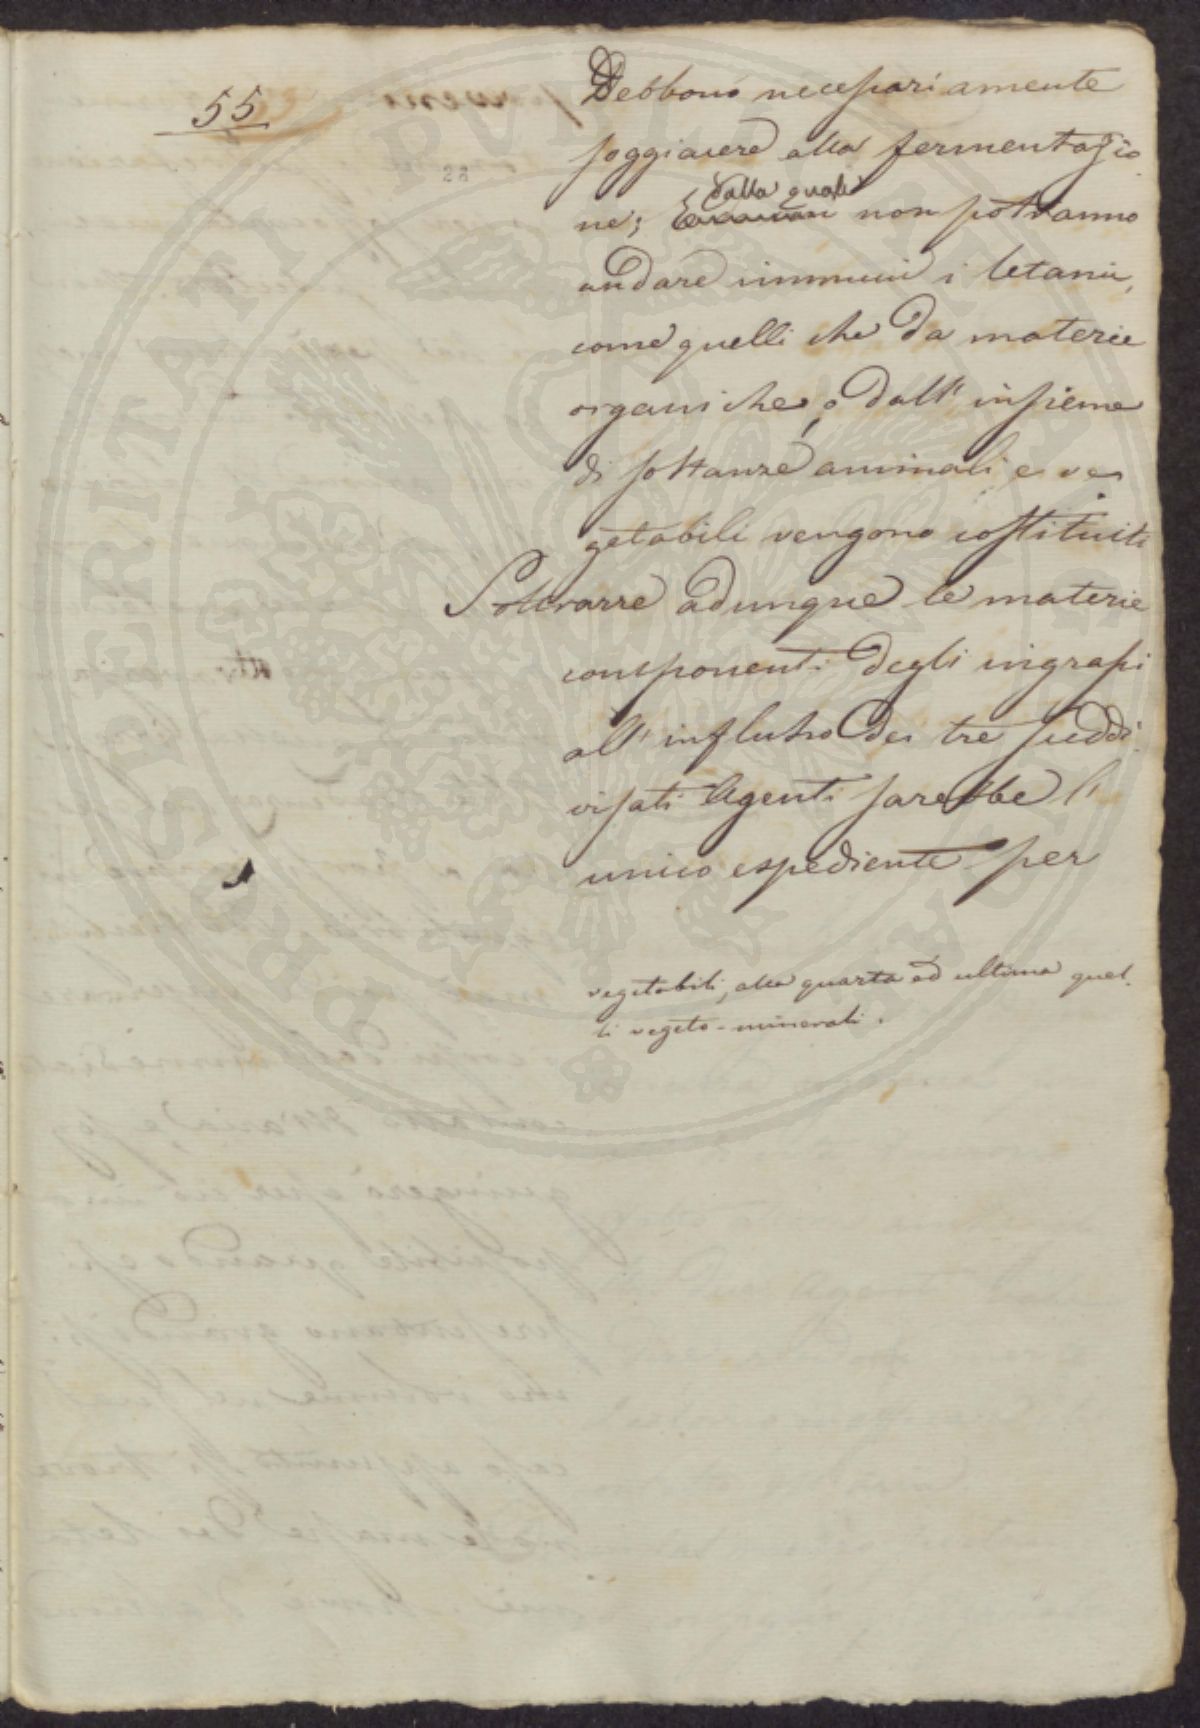 55
28
Debbono necessariamente
soggiacere alla fermentazio
ne; dalla quale non potranno
andare immuni i letami,
come quelli che da materie
organiche, o dall' insieme
di sostanze animali e ve
getabili vengono costituiti
Sottrarre adunque le materie
componenti degli ingrassi
all' influsso dei tre suddi
visati Agenti sarebbe l'
unico espediente per
vegetabili, alla quarta ed ultima quel
li vegeto-minerali.
PROSPERITATI PUBLICAE